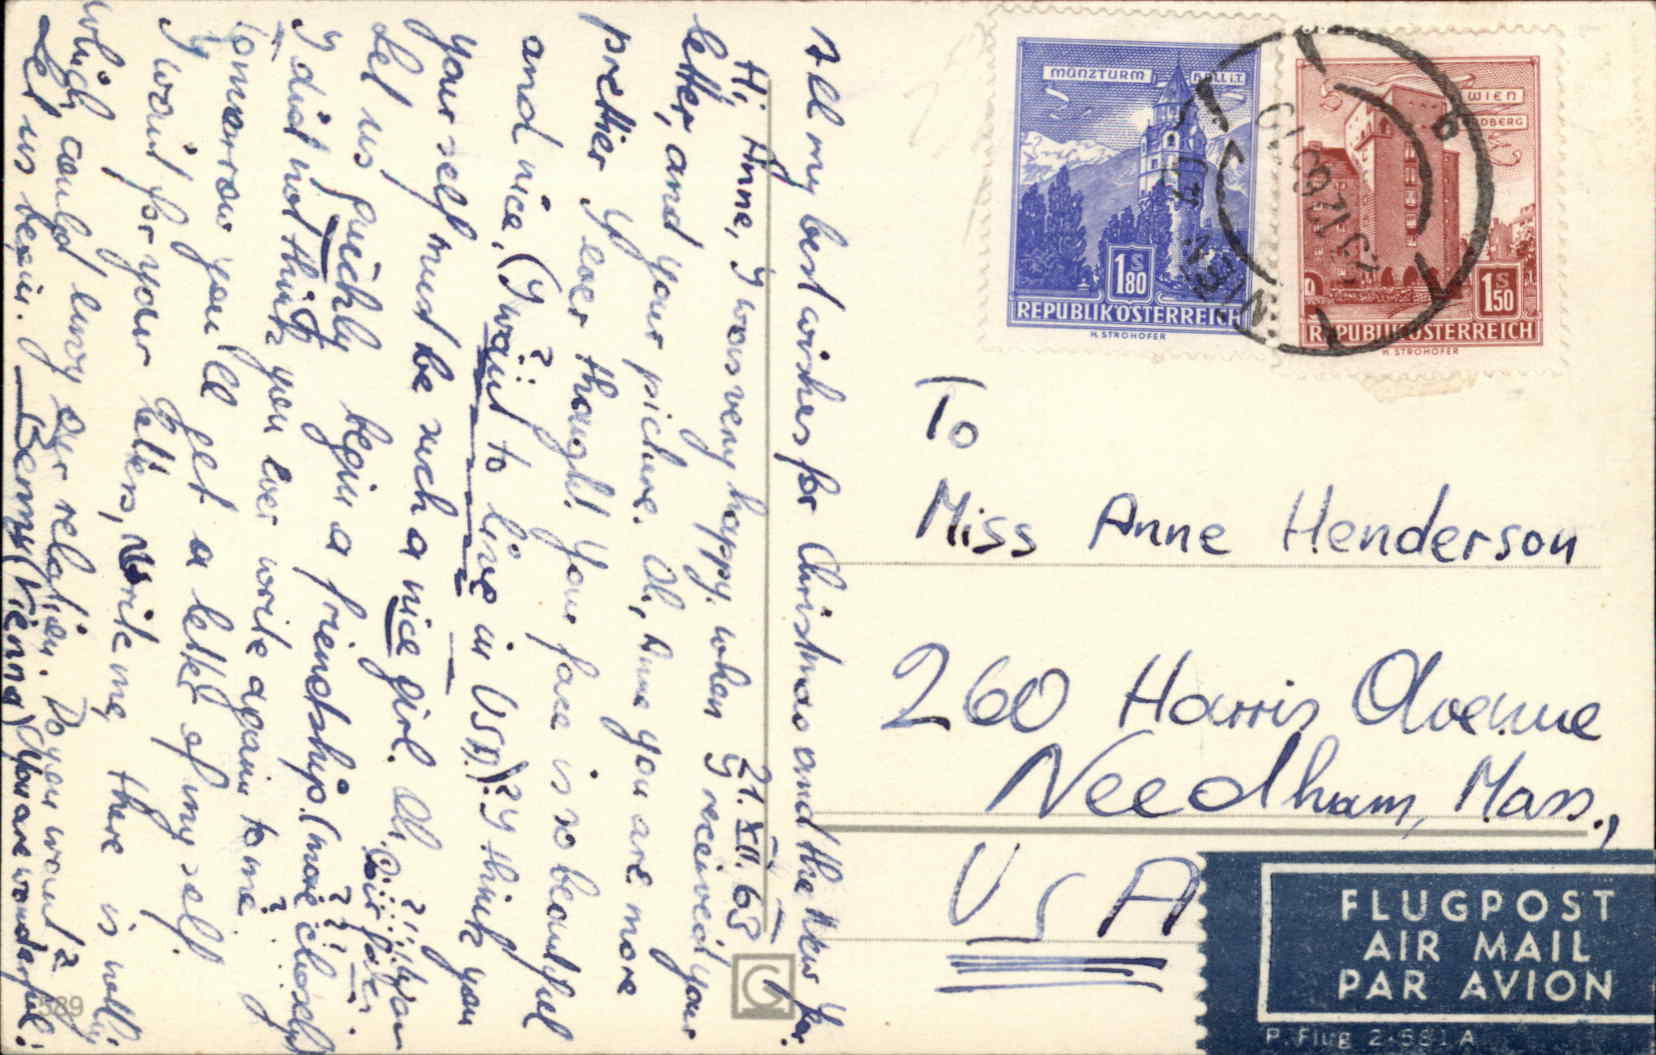 All my best wishes for Christmas and the New Year.
21. XII. 65
Hi, Anne, I was very happy, when I received your
letter, and your picture. Oh, Anne you are more
prettier I ever thought! Your face is so beautiful
and nice. (I want to live in USA!) I think you
your self must be such a nice girl. Oh, you
Let us quickly begin a friendship. (more closely)
I did not think you ever write again to me
tomorrow you'll get a letter of my self.
I wait for your letters, Write me, there is nothing
which could envy our relation. Do you want?
Let us begin! Benny (Vienna) (You are wonderful!
589
MÜNZTURM HALL I.T.
1 S 80
REPUBLIK ÖSTERREICH
H. STROHOFER
WIEN
ERDBERG
1 S 50
REPUBLIK ÖSTERREICH
H. STROHOFER
WIEN
23.12.65-19
b
To
Miss Anne Henderson
260 Harris Avenue
Needham, Mass.,
USA
FLUGPOST
AIR MAIL
PAR AVION
P. Flug 2-581 A